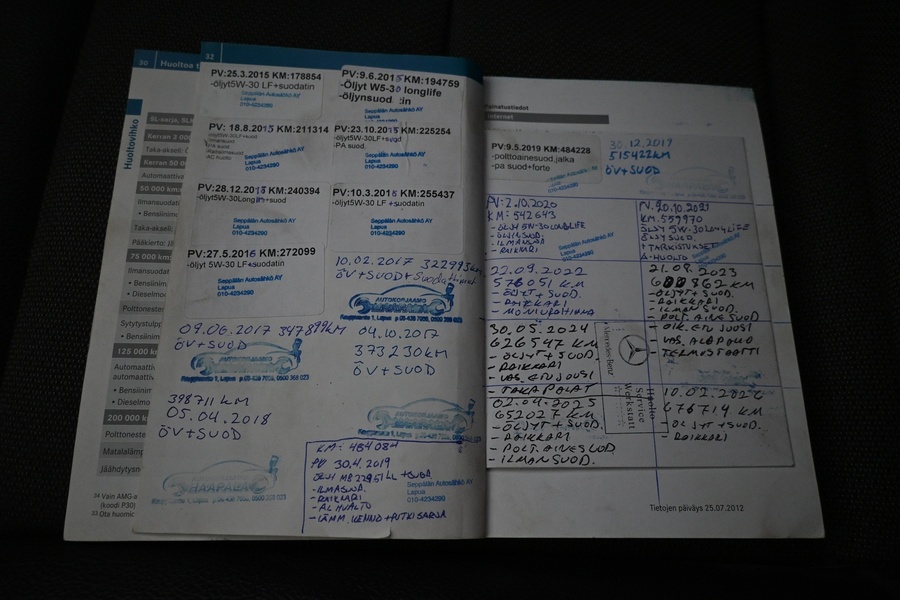 30 Huoltoa
32
Huoltovihko
SL-sarja, SL
Kerran 3 000
Taka-akseli:
Kerran 50
Automaattivai
50 000 km:
Ilmansuodat
• Bensiinim
Taka-akseli:
75 000 km
Ilmansuodat
• Bensiini
• Dieselmo
Polttonest
Sytytystulp
• Bensiinim
125 000 k
Automaatti
automaattiv
• Bensiinim
• Dieselmo
200 000 k
Polttoneste
Matalaläm
Jäähdytysn
34 Vain AMG-a
(koodi P30)
33 Ota huomio
PV:25.3.2015 KM:178854
-öljyt5W-30 LF+suodatin
Seppälän Autosähkö AY
Lapua
010-4234290
PV:9.6.2015 KM:194759
-Öljyt W5-30 longlife
-öljynsuod :in
Seppälän Autosähkö AY
Lapua
010-4234290
PV: 18.8.2015 KM:211314
Seppälän Autosähkö AY
Lapua
010-4234290
PV:23.10.2015 KM:225254
-öljyt5W-30LF+suod
-PA suod.
Seppälän Autosähkö AY
Lapua
010-4234290
PV:28.12.2015 KM:240394
Seppälän Autosähkö AY
Lapua
010-4234290
PV:10.3.2015 KM:255437
-öljyt5W-30 LF +suodatin
Seppälän Autosähkö AY
Lapua
010-4234290
PV:27.5.2016 KM:272099
-öljyt 5W-30 LF+suodatin
Seppälän Autosähkö AY
Lapua
010-4234290
10.02.2017 322995km
ÖV+SUOD+
AUTOKORJAAMO
HAAPALA
Kauppatie 1, Lapua
09.06.2017 347899KM
ÖV+SUOD
AUTOKORJAAMO
HAAPALA
Lapua
04.10.2017
373230KM
ÖV+SUOD
AUTOKORJAAMO
398711 KM
05.04.2018
ÖV+SUOD
HAAPALA
KM: 484084
PV 30.4.2019
ÖLJYT MB 229.51 LL +SUOD
-ILMASUOD.
-RAIKKARI
-AC HUOLTO
-LÄMM. KENNO+PITKÄ SARJA
Seppälän Autosähkö AY
Lapua
010-4234290
Painatustiedot
Internet
PV:9.5.2019 KM:484228
-polttoainesuod.jalka
-pa suod+forte
30.12.2017
515422KM
ÖV+SUOD
PV:2.10.2020
KM: 542643
-ÖLJY 5W-30 LONGLIFE
-ÖLJYSUOD.
-ILMANSUOD
-RAIKKARI
PV. 20.10.2021
KM. 559970
ÖLJY 5W.30 LONGLIFE
ÖLJYSUOD.
TARKISTUKSET
A-HUOLTO
22.09.2022
576051 KM
-ÖLJYT + SUOD.
-RAIKKARI
-MONIURAHIHNA
21.09.2023
600862 KM
-ÖLJYT+SUOD.
-RAIKKARI
-ILMANSUOD.
-POLT. AINE SUOD
-OIK. ETUJOUSI
-VAS. ALAPALLO
-TERMOSTAATTI
30.05.2024
626547 KM
-ÖLJYT+SUOD.
-RAIKKARI
-VAS. ETUJOUSI
-TAKAPALAT
Mercedes-Benz
Huolto
Service
Werkstatt
02.04.2025
652027 KM
-ÖLJYT+SUOD.
-RAIKKARI
-POLT.AINESUOD
-ILMANSUOD.
10.02.2026
676714 KM
-ÖLJYT+SUOD.
-RAIKKARI
Tietojen päiväys 25.07.2012